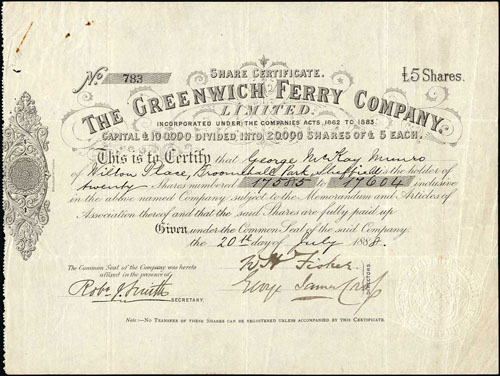 No. 783
SHARE CERTIFICATE.
£5 Shares.
THE GREENWICH FERRY COMPANY
LIMITED.
INCORPORATED UNDER THE COMPANIES ACTS, 1862 TO 1883.
CAPITAL £100,000 DIVIDED INTO 20,000 SHARES OF £5 EACH.
This is to Certify that George McKay Munro
of Wilton Place, Broomhall Park, Sheffield is the holder of
twenty Shares numbered 17585 to 17604 inclusive
in the above named Company subject to the Memorandum and Articles of
Association thereof and that the said Shares are fully paid up
Given under the Common Seal of the said Company,
the 20th day of July 1888.
The Common Seal of the Company was hereto
affixed in the presence of
W H Fisher
Robt. J. Smith
SECRETARY.
George James
DIRECTORS.
Note:—NO TRANSFER OF THESE SHARES CAN BE REGISTERED UNLESS ACCOMPANIED BY THIS CERTIFICATE.